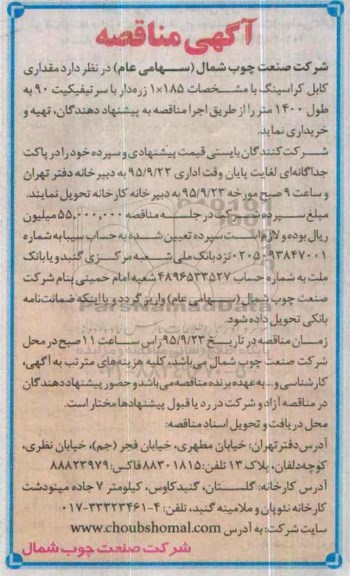 آگهی مناقصه
شرکت صنعت چوب شمال (سهامی عام) در نظر دارد مقداری
کابل کراسینگ با مشخصات ۱۸۵*۱ زره‌دار با سرتیفیکیت ۹۰ به
طول ۱۴۰۰ متر را از طریق اجرا مناقصه به پیشنهاد دهندگان، تهیه و
خریداری نماید.
شرکت کنندگان بایستی قیمت پیشنهادی و سپرده خود را در پاکت
جداگانه‌ای لغایت پایان وقت اداری ۹۵/۹/۲۲ به دبیرخانه دفتر تهران
و ساعت ۹ صبح مورخه ۹۵/۹/۲۳ به دبیرخانه کارخانه تحویل نمایند.
مبلغ سپرده شرکت در جلسه مناقصه ۵۵,۰۰۰,۰۰۰ میلیون
ریال بوده و لازم است سپرده تعیین شده به حساب سیبا به شماره
۰۲۰۵۰۹۳۸۴۷۰۰۱ نزد بانک ملی شعبه مرکزی گنبد و یا بانک
ملت به شماره حساب ۴۸۹۶۵۳۳۵۲۷ شعبه امام خمینی بنام شرکت
صنعت چوب شمال (سهامی عام) واریز گردد و یا اینکه ضمانت‌نامه
بانکی تحویل داده شود.
زمان مناقصه در تاریخ ۹۵/۹/۲۳ راس ساعت ۱۱ صبح در محل
شرکت صنعت چوب شمال می‌باشد، کلیه هزینه‌های مترتب به آگهی،
کارشناسی و... به عهده برنده مناقصه می‌باشد و حضور پیشنهاد دهندگان
در مناقصه آزاد و شرکت در رد یا قبول پیشنهادها مختار است.
محل دریافت و تحویل اسناد مناقصه:
آدرس دفتر تهران: خیابان مطهری، خیابان فجر (جم)، خیابان نظری،
کوچه دلفان، پلاک ۱۳ تلفن: ۸۸۳۰۱۸۱۵ فاکس: ۸۸۸۲۳۹۷۹
آدرس کارخانه: گلستان، گنبدکاوس، کیلومتر ۷ جاده مینودشت
کارخانه نئوپان و ملامینه گنبد، تلفن: ۴-۳۳۳۲۳۴۶۱-۰۱۷
سایت شرکت: به آدرس www.choubshomal.com
شرکت صنعت چوب شمال
ParsNamadData